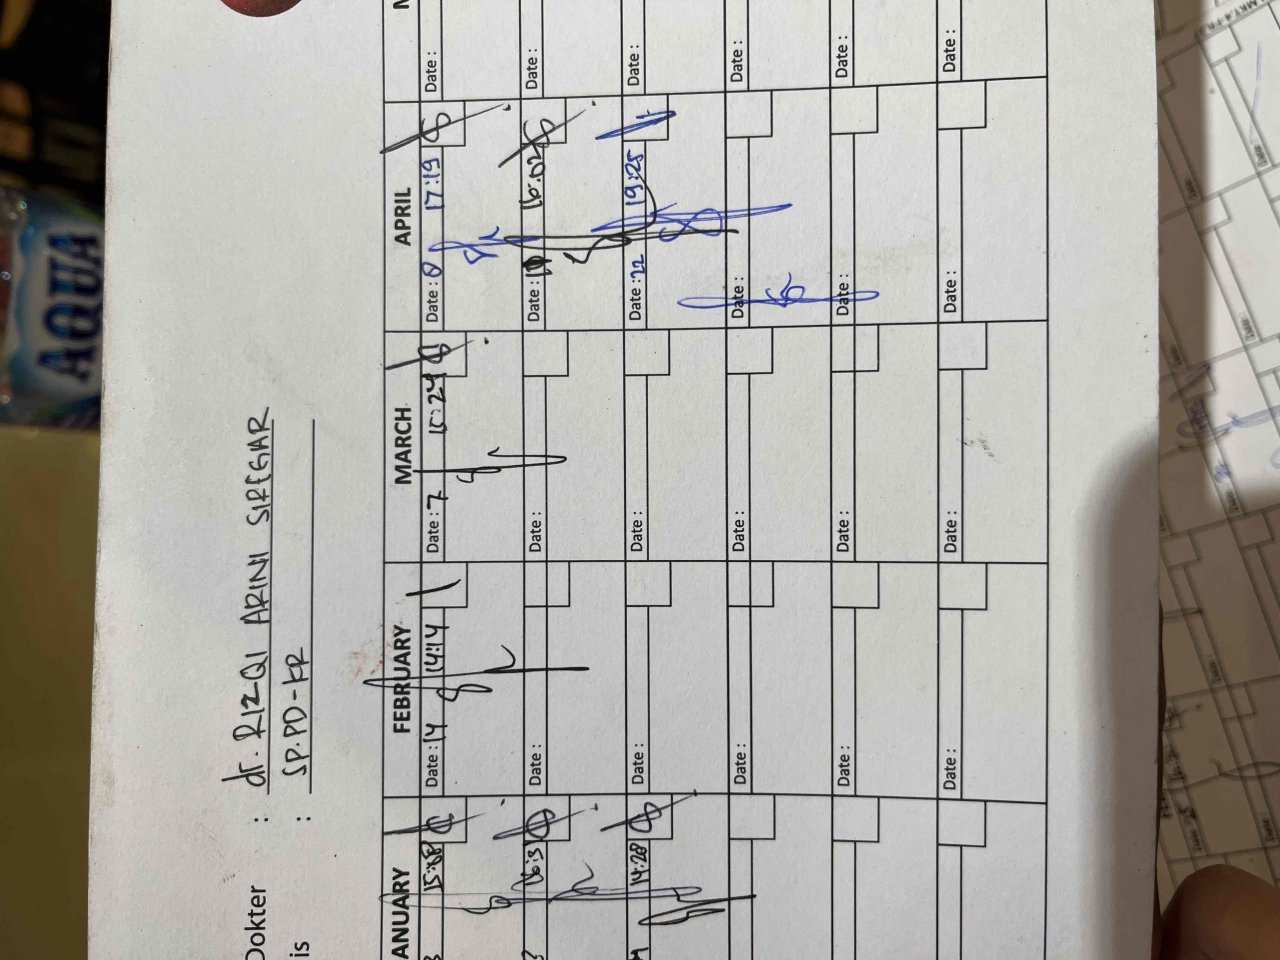 Dokter : dr. RIZQI ARINI SIREGAR
is : SP.PD-KR
ANUARY FEBRUARY MARCH APRIL
15:58 Date : 14 14:14 Date : 7 15:24 Date : 8 17:19 Date :
Date : Date : Date : 16:02 Date :
14:28 Date : Date : Date : 22 19:25 Date :
Date : Date : Date : Date :
Date : Date : Date : Date :
Date : Date : Date : Date :
AQUA